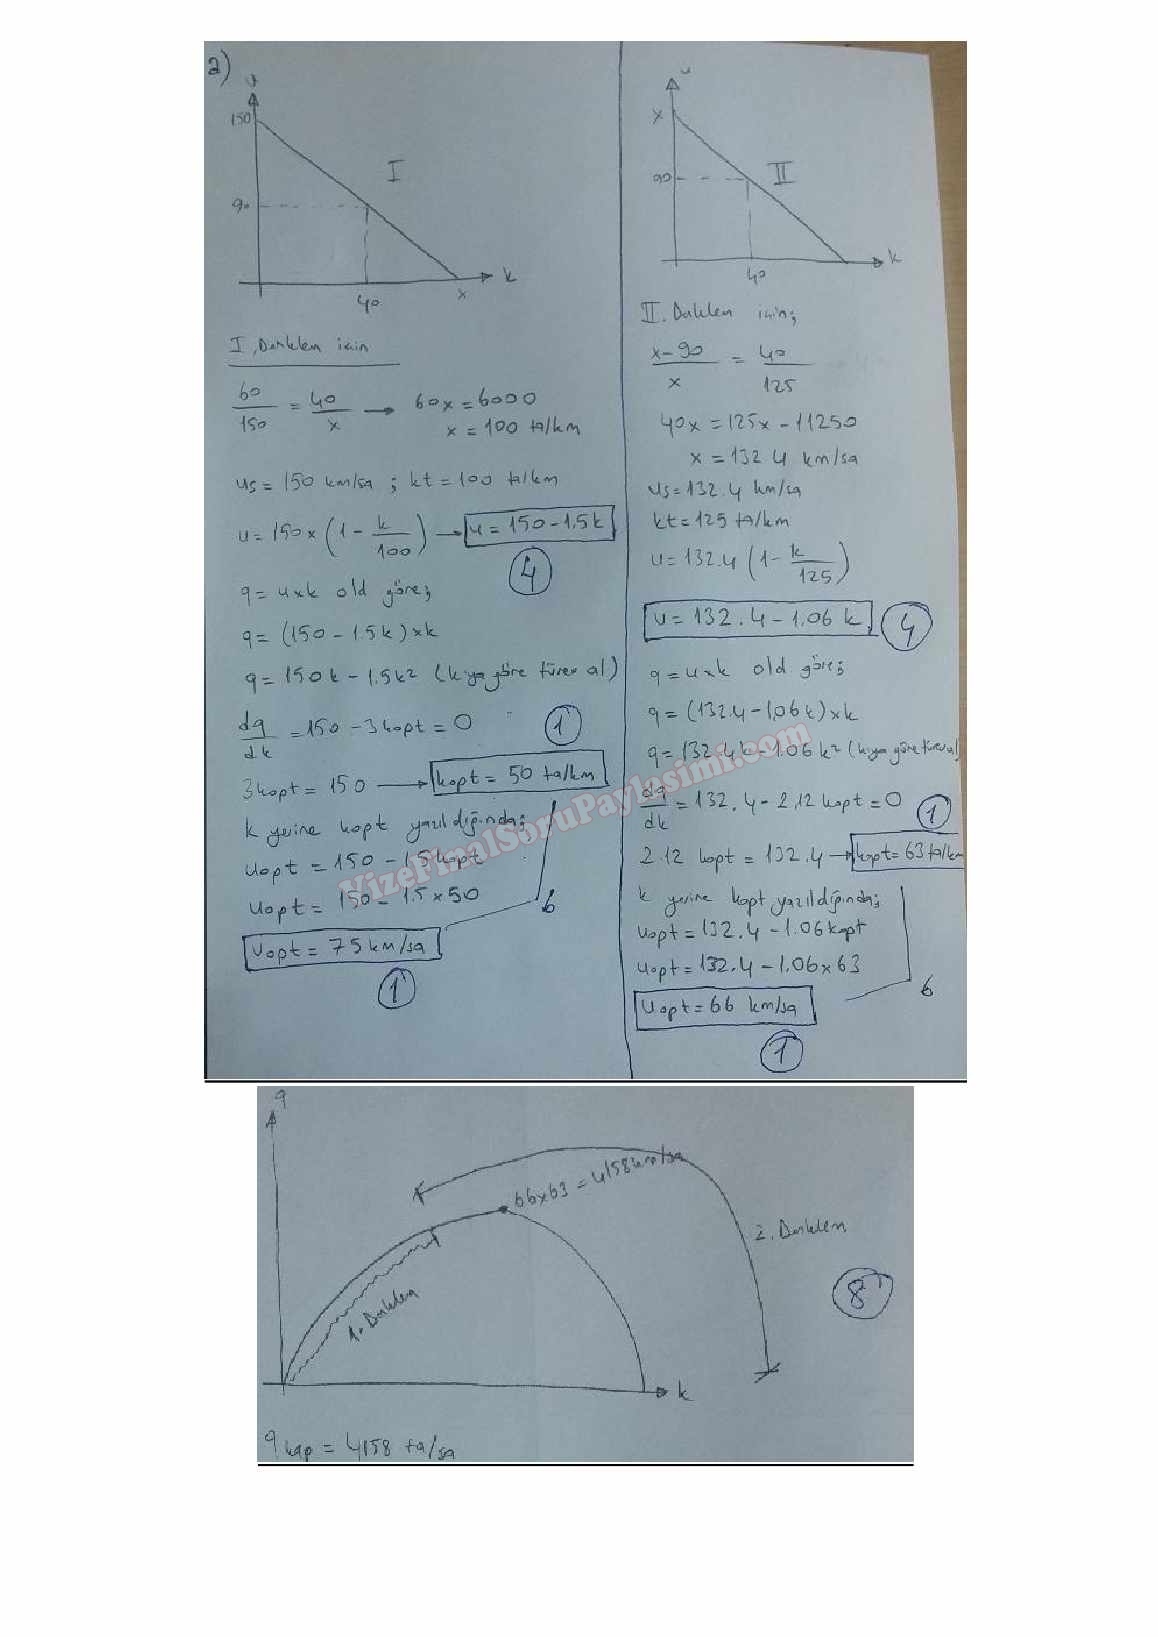 a)
u
150
I
90
40
x
k
I. Denklem için
60/150 = 40/x → 60x = 6000
x = 100 ta/km
us = 150 km/sa ; kt = 100 ta/km
u = 150 x (1 - k/100) → u = 150 - 1.5k
4
q = u x k old göre;
q = (150 - 1.5k) x k
q = 150k - 1.5k² (k'ya göre türev al)
dq/dk = 150 - 3kopt = 0
1
3kopt = 150 → kopt = 50 ta/km
k yerine kopt yazıldığında;
uopt = 150 - 1.5kopt
uopt = 150 - 1.5 x 50
6
uopt = 75 km/sa
1
u
x
90
II
40
k
II. Denklem için;
x-90/x = 40/125
40x = 125x - 11250
x = 132.4 km/sa
us = 132.4 km/sa
kt = 125 ta/km
u = 132.4 (1 - k/125)
u = 132.4 - 1.06 k
4
q = u x k old göre;
q = (132.4 - 1.06k) x k
q = 132.4k - 1.06k² (k'ya göre türev al)
dq/dk = 132.4 - 2.12 kopt = 0
1
2.12 kopt = 132.4 → kopt = 63 ta/km
k yerine kopt yazıldığında;
uopt = 132.4 - 1.06kopt
uopt = 132.4 - 1.06 x 63
6
uopt = 66 km/sa
1
VizeFinalSoruPaylasimi.com
q
66x63 = 4158
2. Denklem
1. Denklem
8
k
qkap = 4158 ta/sa